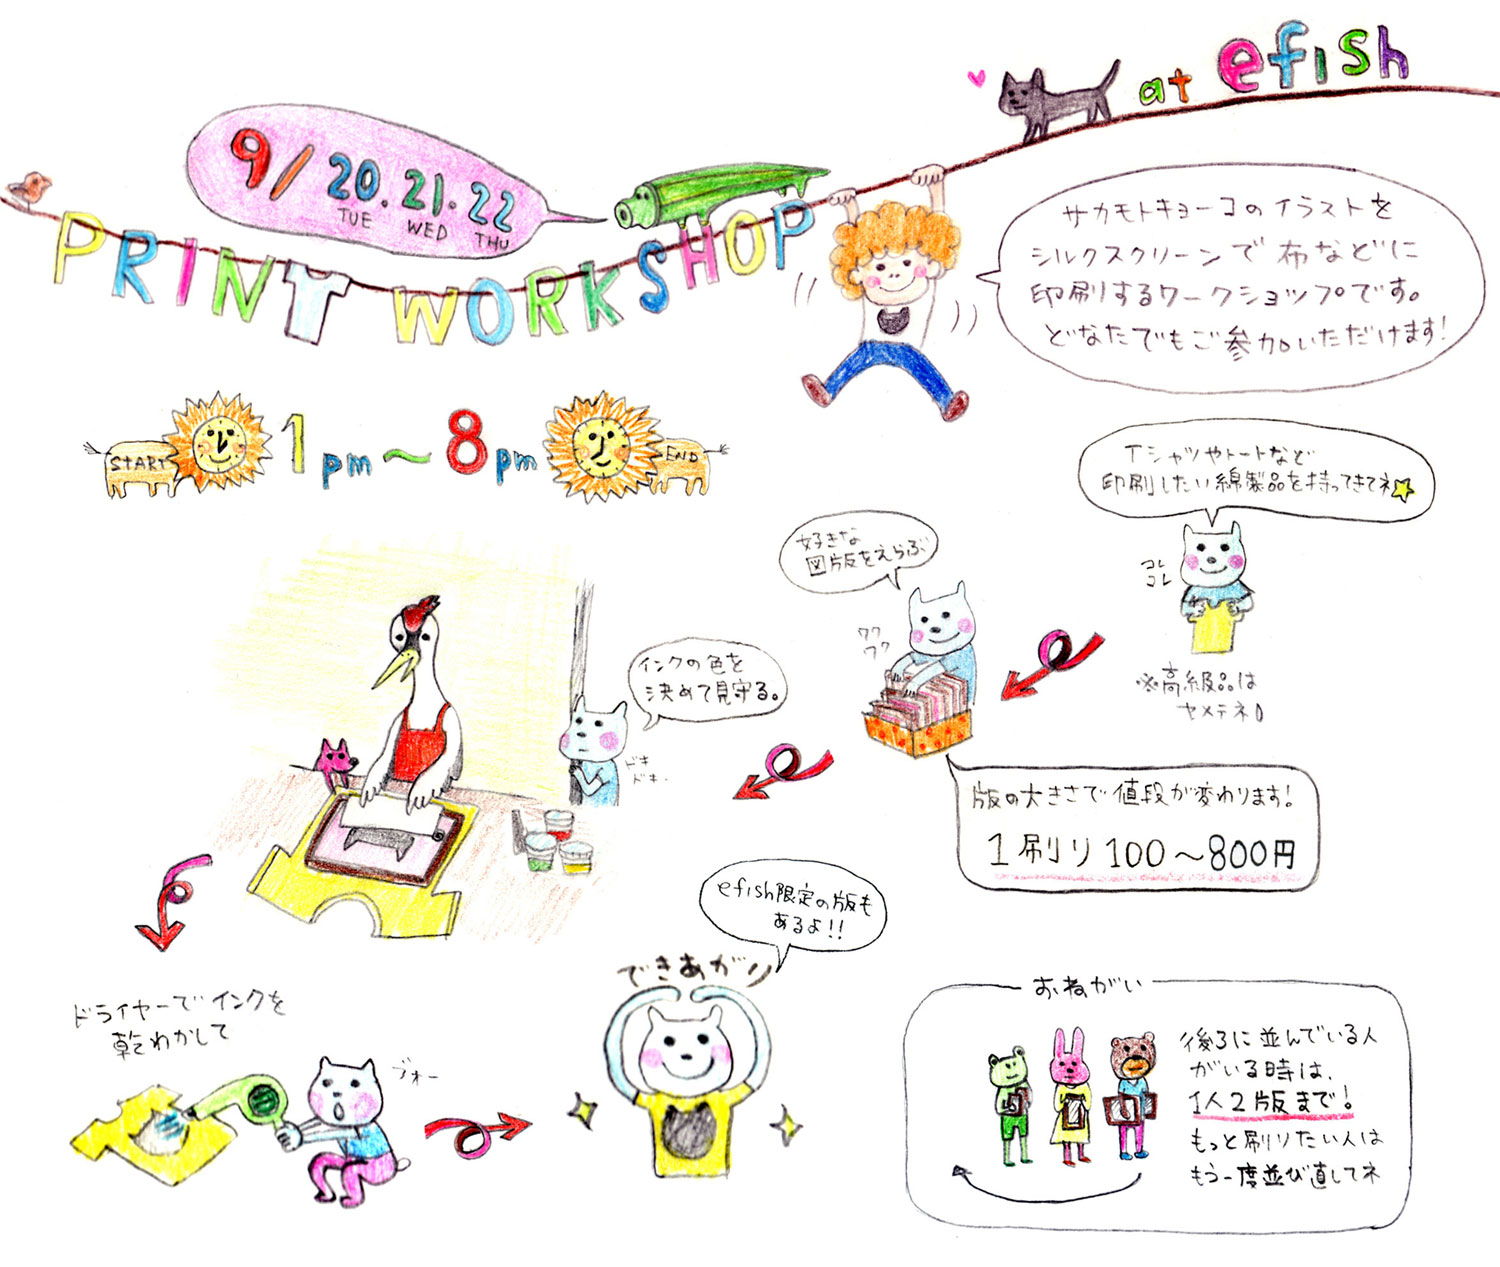 at efish
9/20.21.22
TUE WED THU
PRINT WORKSHOP
サカモトキョーコのイラストを
シルクスクリーンで布などに
印刷するワークショップです。
どなたでもご参加いただけます!
START 1pm〜8pm END
Tシャツやトートなど
印刷したい綿製品を持ってきてネ☆
コレ
コレ
※高級品は
ヤメテネ
好きな
図版をえらぶ
ワク
ワク
版の大きさで値段が変わります!
1刷り100〜800円
インクの色を
決めて見守る。
ドキ
ドキ
ドライヤーでインクを
乾わかして
ブォー
efish限定の版も
あるよ!!
できあがり
おねがい
後ろに並んでいる人
がいる時は、
1人2版まで!
もっと刷りたい人は
もう一度並び直してネ